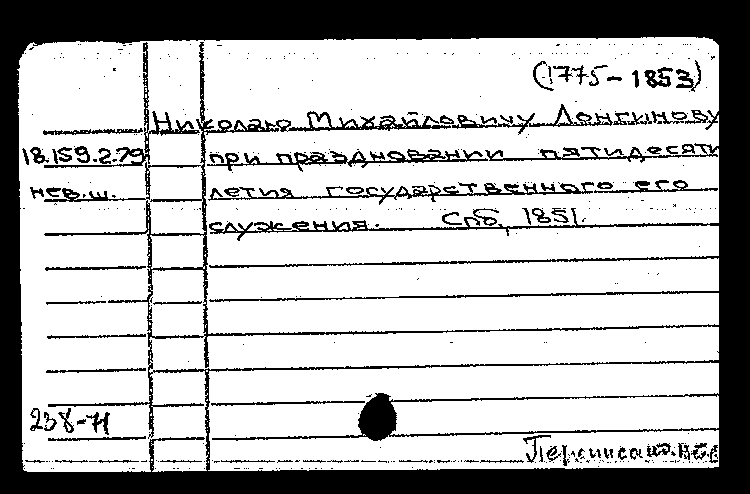 (1775-1853)
Николаю Михайловичу Лонгинову
18.159.2.79 при праздновании пятидесяти
нев.ш. летия государственного его
служения. Спб, 1851.
238-71